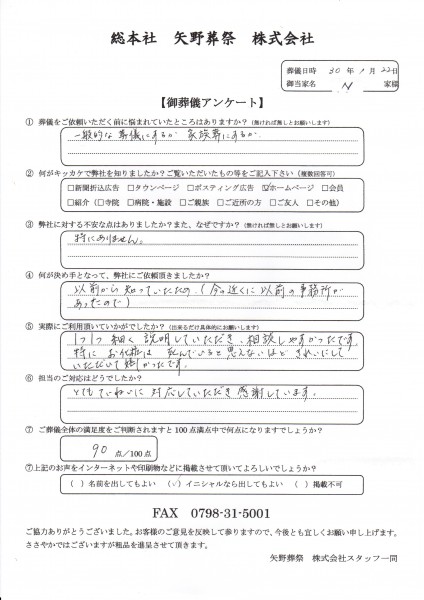 総本社 矢野葬祭 株式会社
葬儀日時 30年1月22日
御当家名 N 家様
【御葬儀アンケート】
① 葬儀をご依頼いただく前に悩まれていたところはありますか?(無ければ無しとお願いします)
一般的な葬儀にするか 家族葬にするか
② 何がキッカケで弊社を知りましたか?ご覧いただいたもの等をご記入下さい(複数回答可)
□新聞折込広告 □タウンページ □ポスティング広告 ☑ホームページ □会員
□紹介(□寺院 □病院・施設 □ご親族 □ご近所の方 □ご友人 □その他)
③ 弊社に対する不安な点はありましたか?また、なぜですか?(無ければ無しとお願いします)
特にありません。
④ 何が決め手となって、弊社にご依頼頂きましたか?
以前から知っていたため。(今の近くに以前の事務所が
あったので)
⑤ 実際にご利用頂いていかがでしたか?(出来るだけ具体的にお願いします)
1つ1つ細く説明していただき、相談しやすかったです。
特にお化粧は死んでいると思えないほどきれいにして
いただいて嬉しかったです。
⑥ 担当のご対応はどうでしたか?
とてもていねいに対応していただき感謝しています。
⑦ ご葬儀全体の満足度をご判断されますと100点満点中で何点になりますでしょうか?
90 点/100点
⑦上記のお声をインターネットや印刷物などに掲載させて頂いてよろしいでしょうか?
( )名前を出してもよい (✓)イニシャルなら出してもよい ( )掲載不可
FAX 0798-31-5001
ご協力ありがとうございました。お客様のご意見を反映して参りますので、今後とも宜しくお願い申し上げます。
ささやかではございますが粗品を進呈させて頂きます。
矢野葬祭 株式会社スタッフ一同